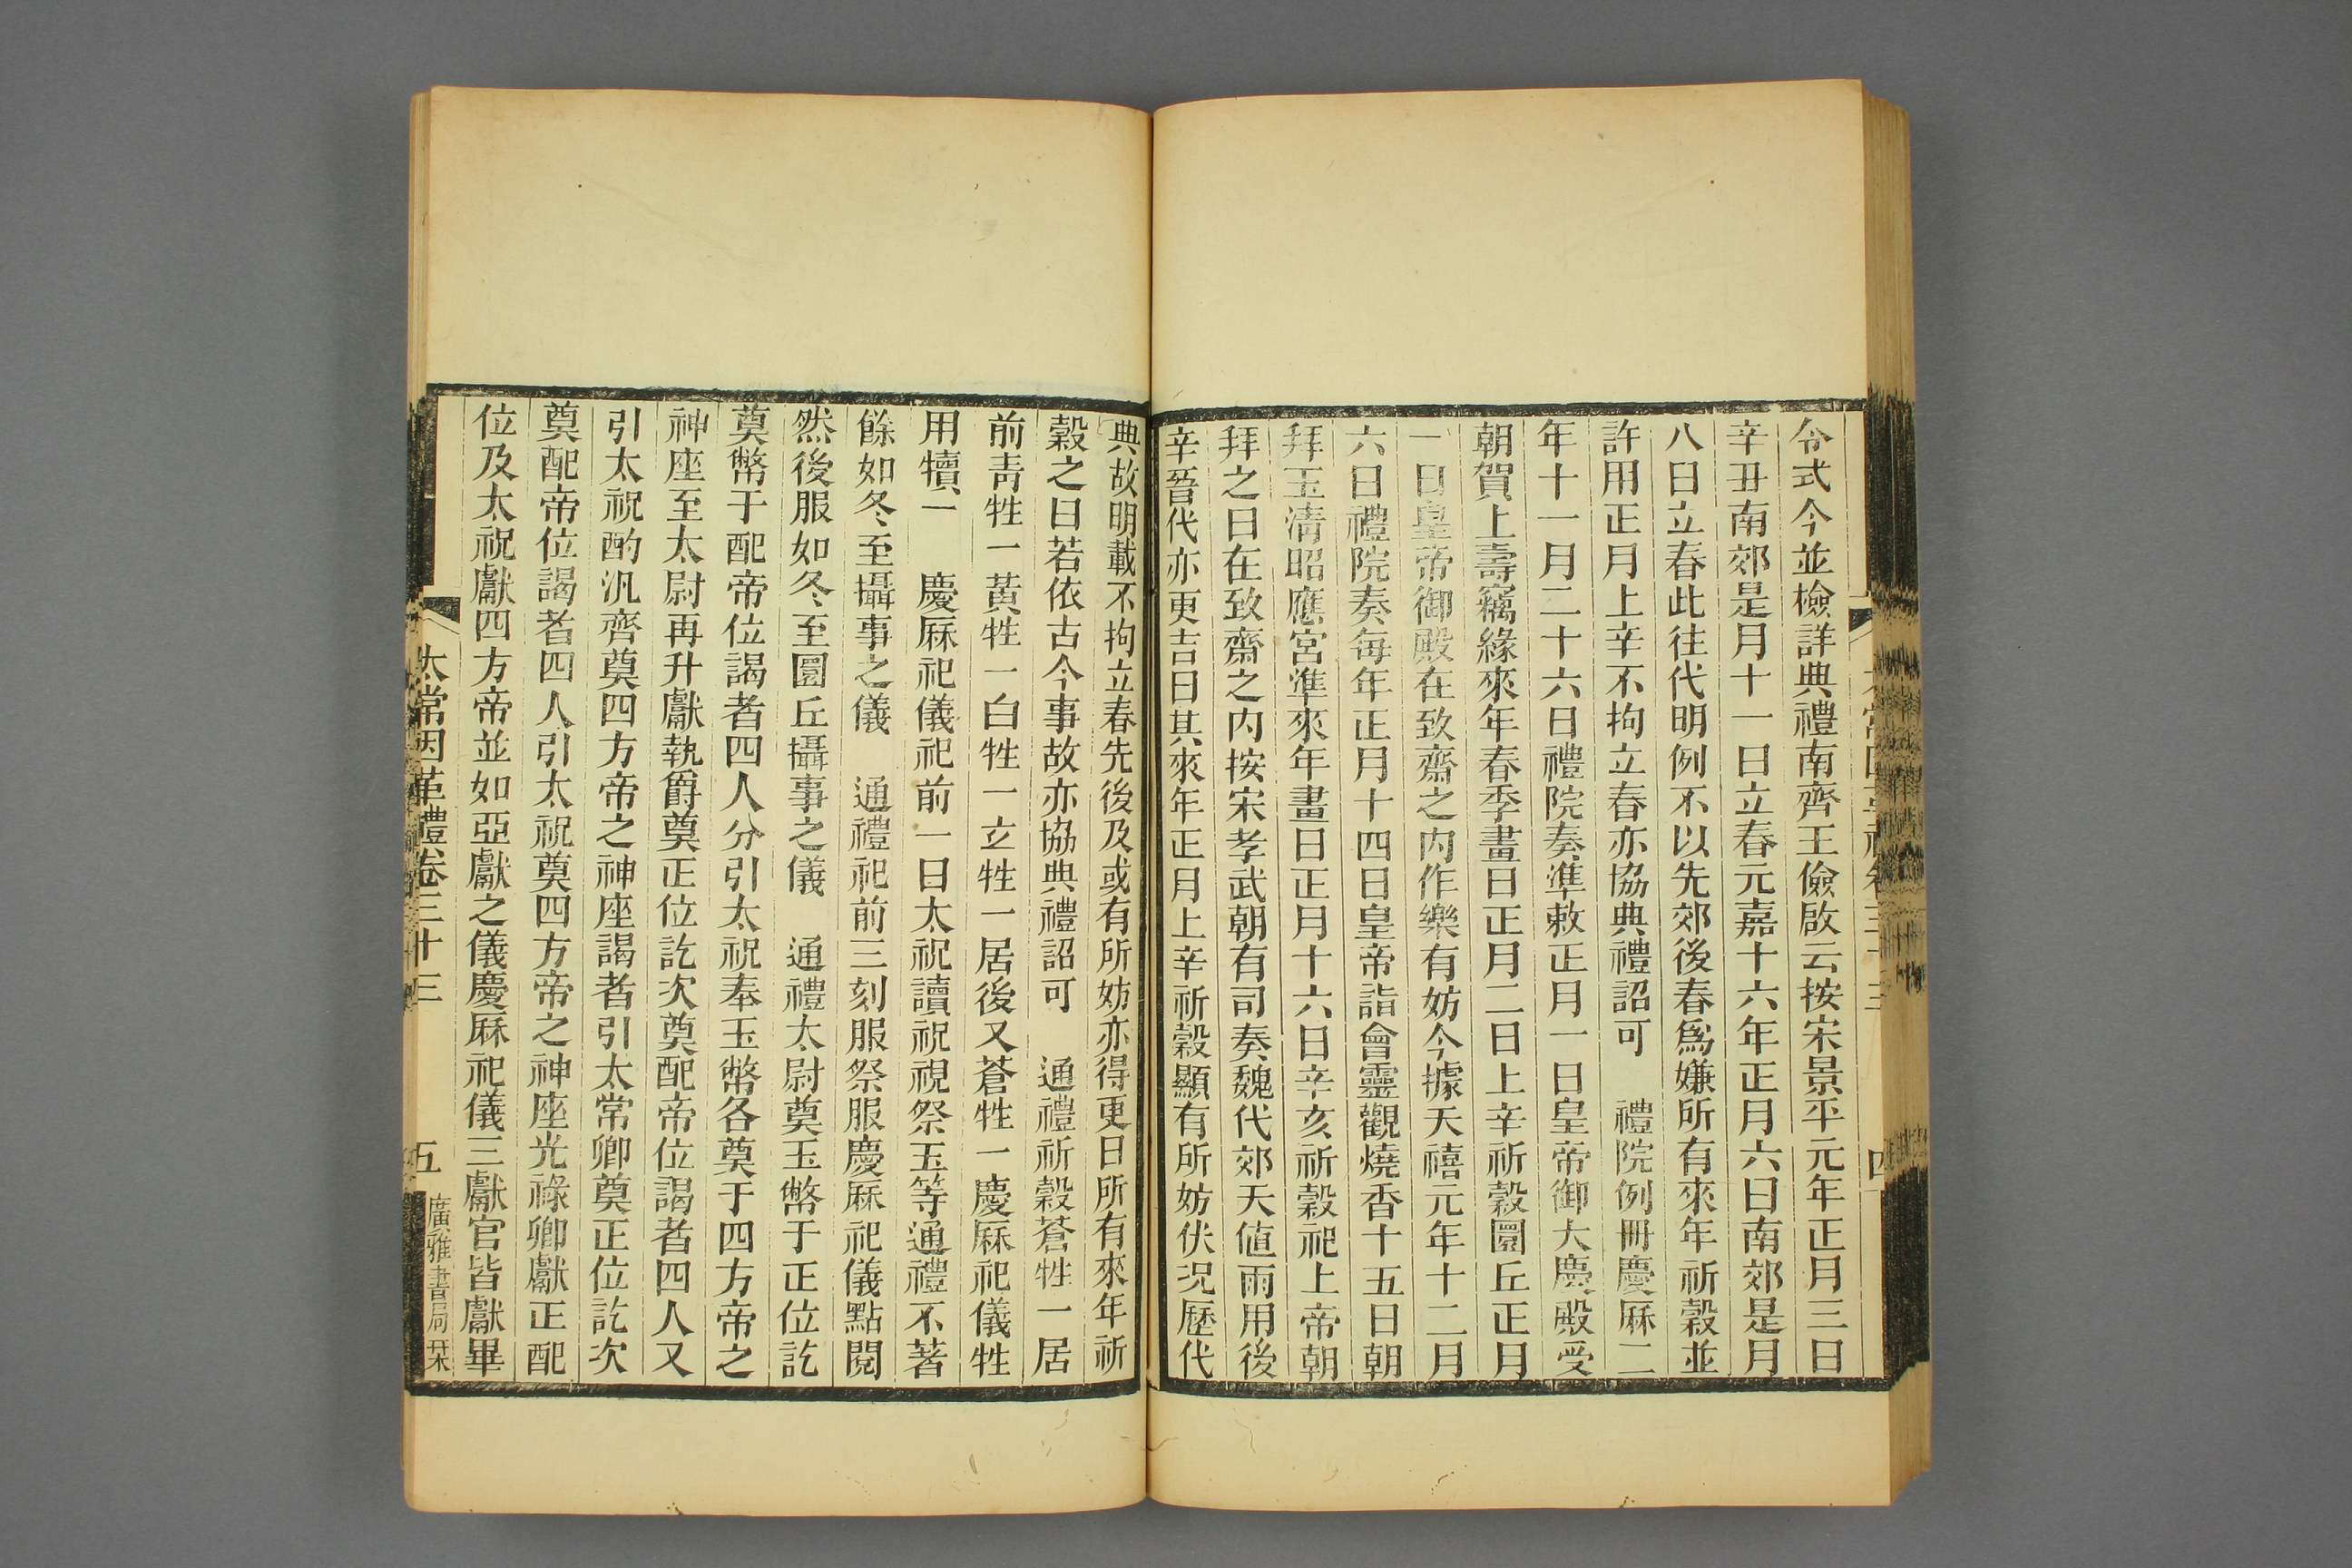 令式今並檢詳典禮南齊王儉啟云按宋景平元年正月三日
辛丑南郊是月十一日立春元嘉十六年正月六日南郊是月
八日立春此往代明例不以先郊後春爲嫌所有來年祈穀並
許用正月上辛不拘立春亦協典禮詔可　禮院例冊慶厤二
年十一月二十六日禮院奏準敕正月一日皇帝御大慶殿受
朝賀上壽竊緣來年春季畫日正月二日上辛祈穀圜丘正月
一日皇帝御殿在致齋之内作樂有妨今據天禧元年十二月
六日禮院奏每年正月十四日皇帝詣會靈觀燒香十五日朝
拜玉淸昭應宮準來年畫日正月十六日辛亥祈穀祀上帝朝
拜之日在致齋之内按宋孝武朝有司奏魏代郊天値雨用後
辛晉代亦更吉日其來年正月上辛祈穀顯有所妨伏况歷代
典故明載不拘立春先後及或有所妨亦得更日所有來年祈
穀之日若依古今事故亦協典禮詔可　通禮祈穀蒼牲一居
前靑牲一黃牲一白牲一立牲一居後又蒼牲一慶厤祀儀牲
用犢一　慶厤祀儀祀前一日太祝讀祝視祭玉等通禮不著
餘如冬至攝事之儀　通禮祀前三刻服祭服慶厤祀儀點閱
然後服如冬至圜丘攝事之儀　通禮太尉奠玉幣于正位訖
奠幣于配帝位謁者四人分引太祝奉玉幣各奠于四方帝之
神座至太尉再升獻執爵奠正位訖次奠配帝位謁者四人又
引太祝酌汎齊奠四方帝之神座謁者引太常卿奠正位訖次
奠配帝位謁者四人引太祝奠四方帝之神座光祿卿獻正配
位及太祝獻四方帝並如亞獻之儀慶厤祀儀三獻官皆獻畢
太常因革禮卷三十三　五
廣雅書局栞